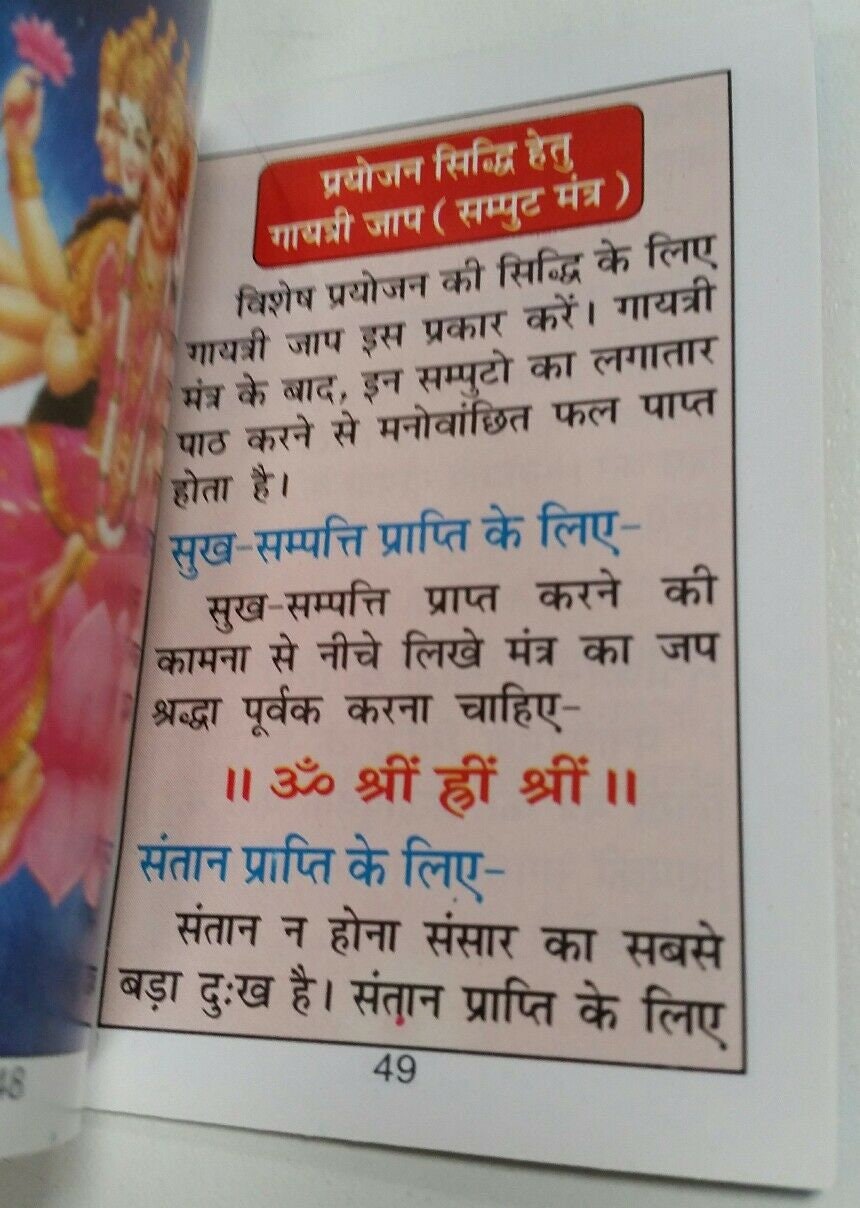 प्रयोजन सिद्धि हेतु
गायत्री जाप ( सम्पुट मंत्र )
विशेष प्रयोजन की सिद्धि के लिए
गायत्री जाप इस प्रकार करें। गायत्री
मंत्र के बाद, इन सम्पुटो का लगातार
पाठ करने से मनोवांछित फल पाप्त
होता है।
सुख-सम्पत्ति प्राप्ति के लिए-
सुख-सम्पत्ति प्राप्त करने की
कामना से नीचे लिखे मंत्र का जप
श्रद्धा पूर्वक करना चाहिए-
।। ॐ श्रीं ह्रीं श्रीं ।।
संतान प्राप्ति के लिए-
संतान न होना संसार का सबसे
बड़ा दुःख है। संतान प्राप्ति के लिए
49
48